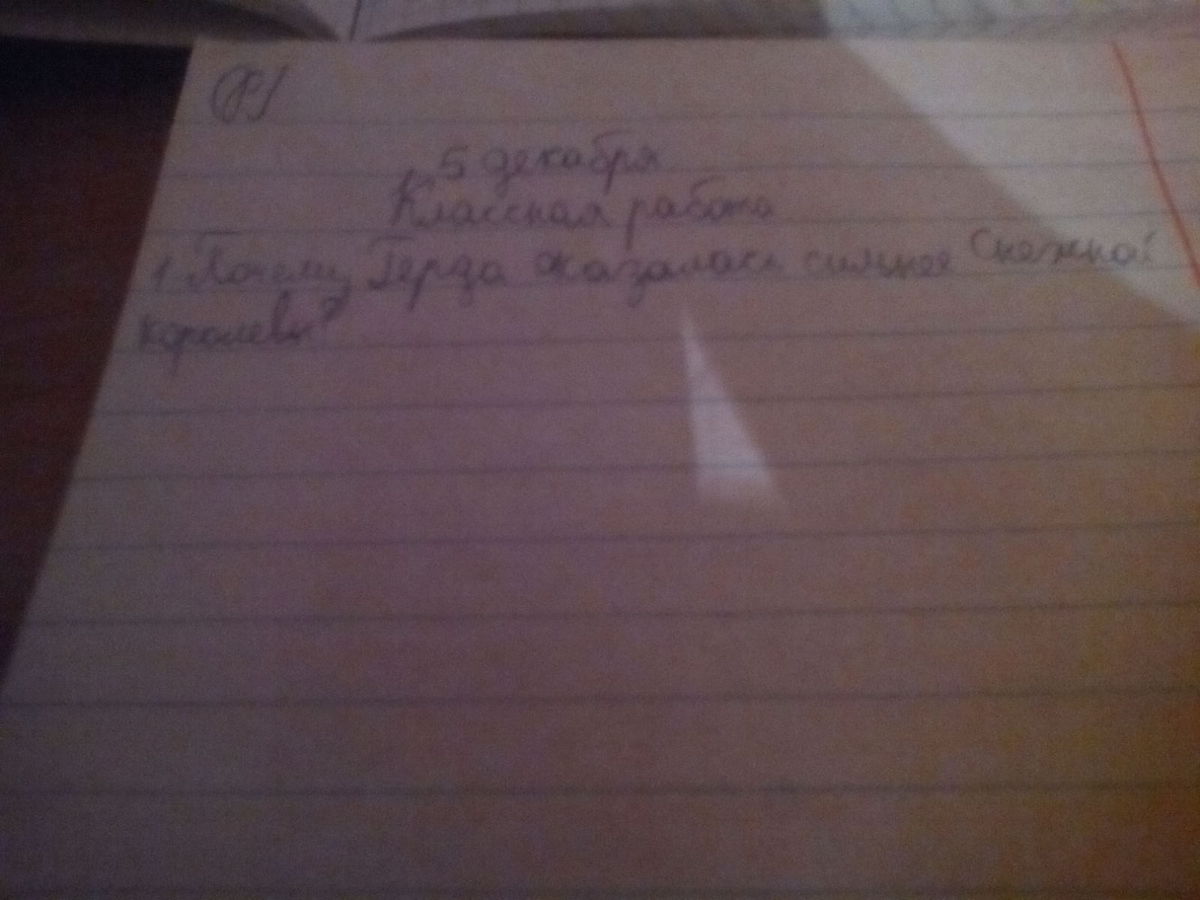 5 декабря
Классная работа
1. Почему Герда оказалась сильнее Снежной
королевы?